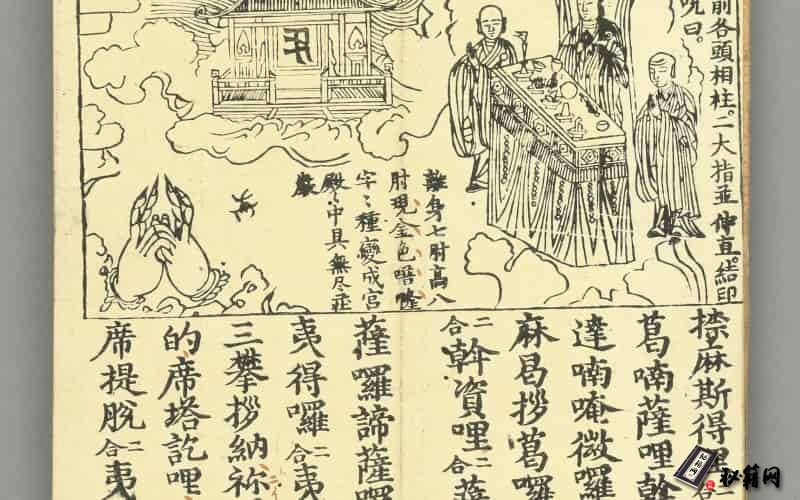 前各頭相柱。二大指並伸直。結印
呪曰。
離身七肘高八
肘現金色唵隆
字〻種變成宮
殿〻中具無尽莊
嚴
捺麻斯得
葛喃薩哩幹
達喃唵微囉
麻曷拶葛囉
二合幹資哩二合
薩囉諦薩
夷得囉二合夷
三攀拶納祢
的席塔訖哩
席提脫二合夷
秘籍网